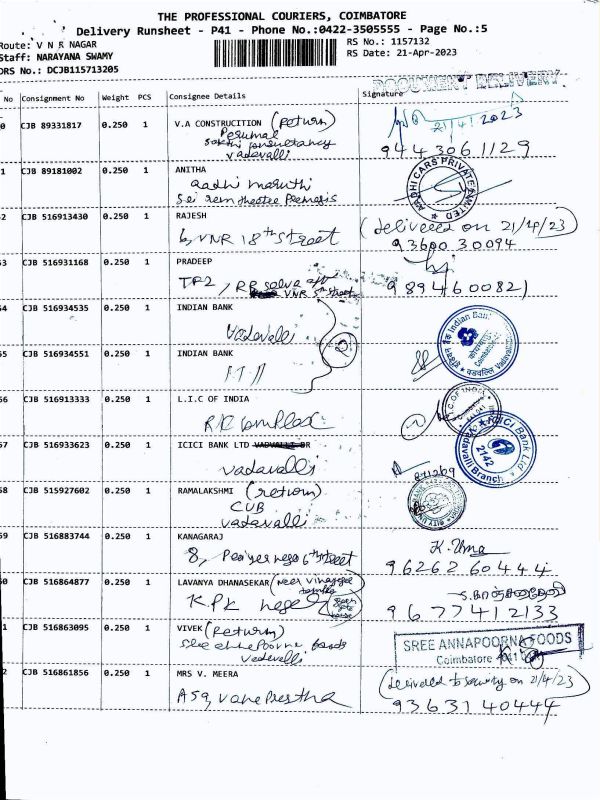 THE PROFESSIONAL COURIERS, COIMBATORE
Delivery Runsheet - P41 - Phone No.:0422-3505555 - Page No.:5
Route: V N R NAGAR
RS No.: 1157132
Staff: NARAYANA SWAMY
RS Date: 21-Apr-2023
DRS No.: DCJB115713205
DOCUMENT DELIVERY
No Consignment No Weight PCS Consignee Details Signature
0 CJB 89331817 0.250 1 V.A CONSTRUCITION (Return)
Perumal
Sakthi Consultancy
Vadavalli
21/4/2023
94430 61129
1 CJB 89181002 0.250 1 ANITHA
aadhi maruthi
AADHI CARS PRIVATE LIMITED
2 CJB 516913430 0.250 1 RAJESH
6, VNR 18th Street
(delivered on 21/4/23)
93600 30094
3 CJB 516931168 0.250 1 PRADEEP
VNR 5th Street
9894600821
54 CJB 516934535 0.250 1 INDIAN BANK
Vadavalli
Indian Bank
Coimbatore
55 CJB 516934551 0.250 1 INDIAN BANK
56 CJB 516913333 0.250 1 L.I.C OF INDIA
L.I.C OF INDIA
57 CJB 516933623 0.250 1 ICICI BANK LTD VADVALLI BR
Vadavalli
ICICI Bank Ltd
2142
Vadavalli Branch
58 CJB 515927602 0.250 1 RAMALAKSHMI (return)
CUB
Vadavalli
59 CJB 516883744 0.250 1 KANAGARAJ
8, 6th Street
K. Uma
96262 60444
60 CJB 516864877 0.250 1 LAVANYA DHANASEKAR
K.P.K
96774 12133
1 CJB 516863095 0.250 1 VIVEK (Return)
Sree annapoorna foods
Vadavalli
SREE ANNAPOORNA FOODS
Coimbatore
2 CJB 516861856 0.250 1 MRS V. MEERA
A59, Vanaprestha
(delivered to security on 21/4/23)
93631 40444